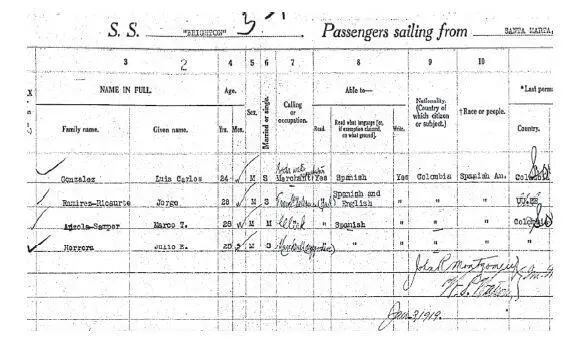 S. S. "BRIGHTON" Passengers sailing from SANTA MARTA,
3 4 5 6 7 8 9 10
2
NAME IN FULL Age. Sex. Married or single. Calling or occupation. Able to— Nationality. (Country of which citizen or subject). †Race or people. *Last perm
Family name. Given name. Yrs. Mos. Read. Read what language [or, if exemption claimed, on what ground]. Write. Country.
Gonzalez Luis Carlos 24 M S Merchant Yes Spanish Yes Colombia Spanish Am. Colombia
Ramirez-Ricaurte Jorge 28 M S Spanish and English " " "
Marco T. 28 M M Clerk " Spanish " " " Colombia
Herrera Julio E. M S " " " " "
John R Montgomery
Jan-3/1919.